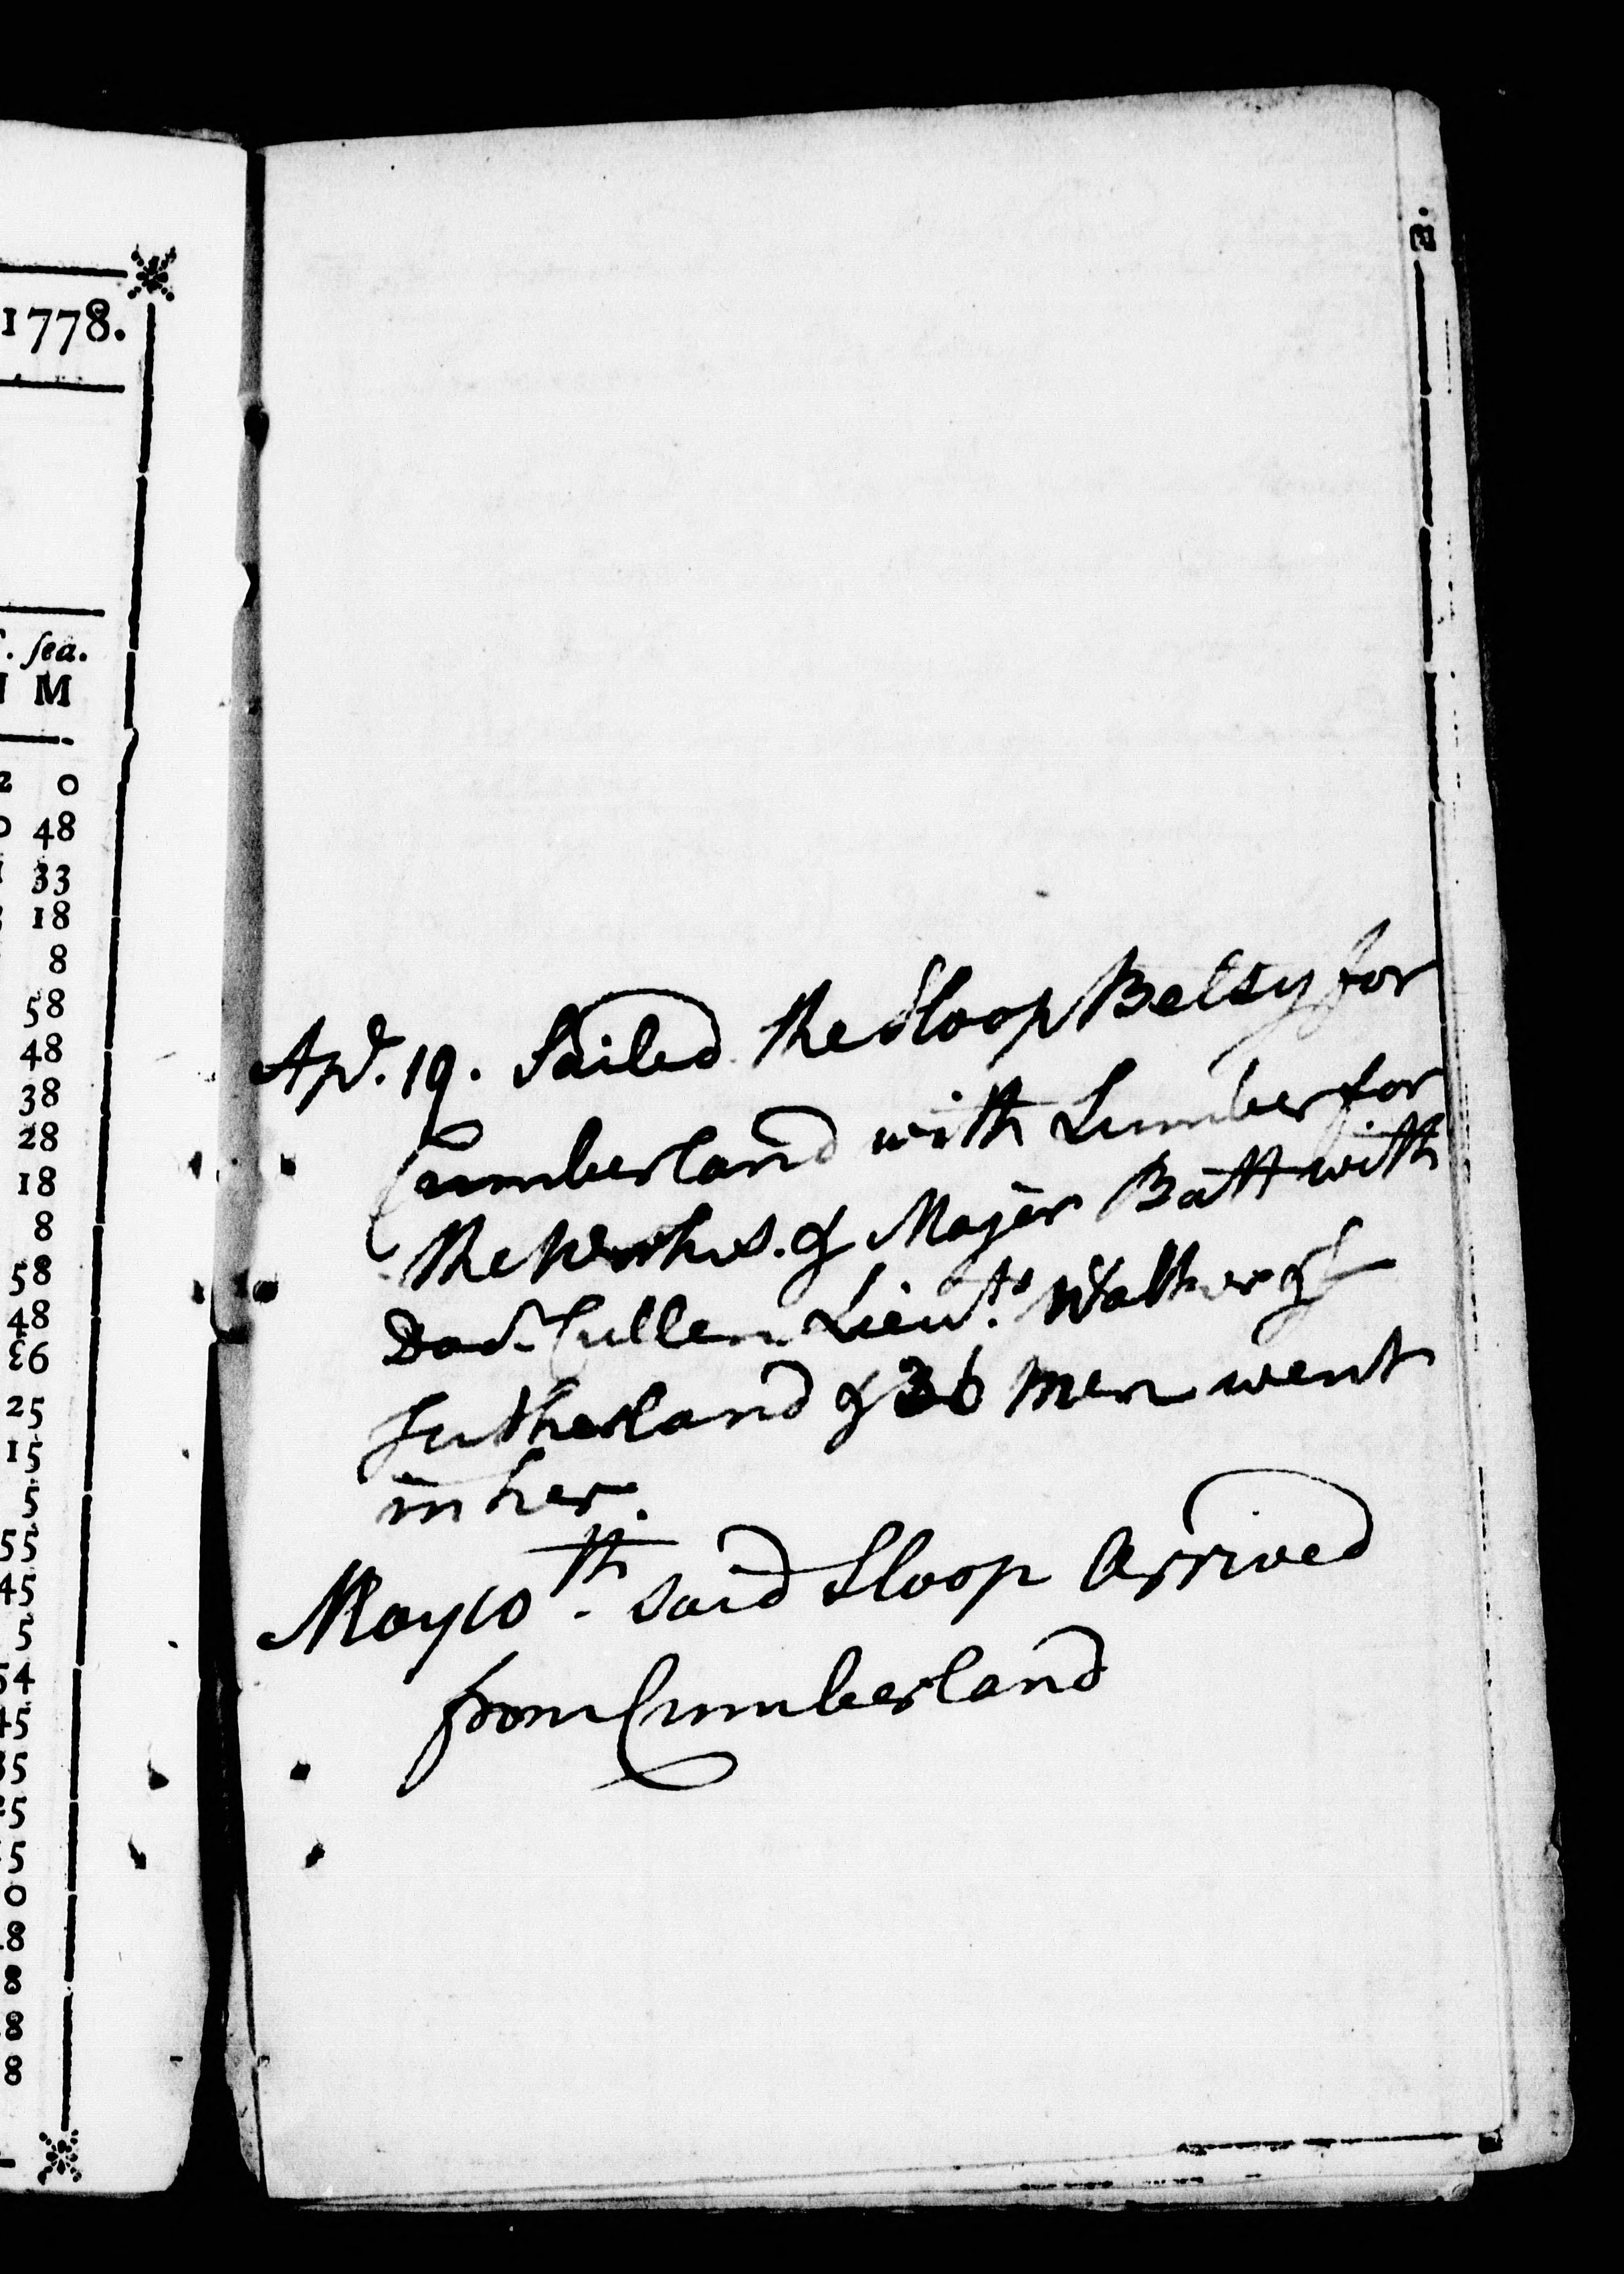 1778.
. sea.
M
0
48
33
18
8
58
48
38
28
18
8
58
48
36
25
15
5
55
45
5
54
45
35
5
5
0
8
8
8
8
Apl. 19. Sailed the Sloop Betsy for
Cumberland with Lumber for
the Works. & Major Batt with
Doct. Cullen Lieuts. Walker &
Sutherland & 36 men went
in her.
May 10th. said Sloop Arrived
from Cumberland